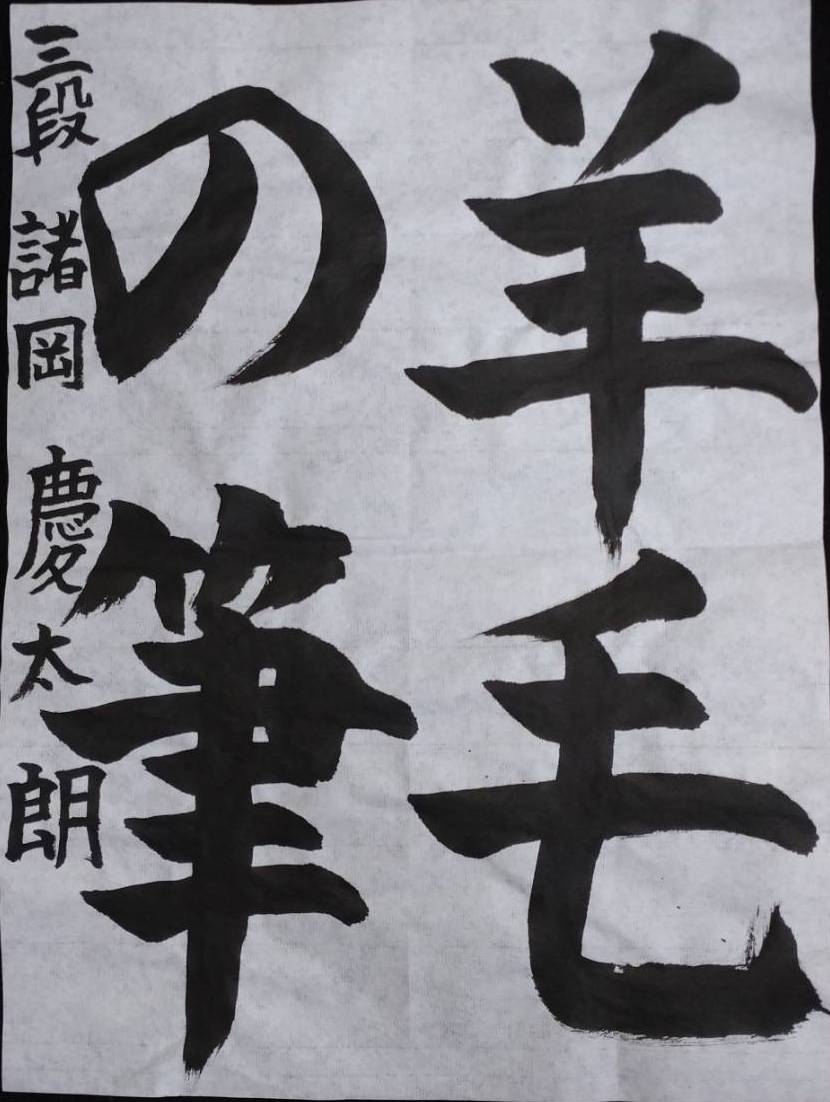 羊毛
の筆
三段 諸岡 慶太朗